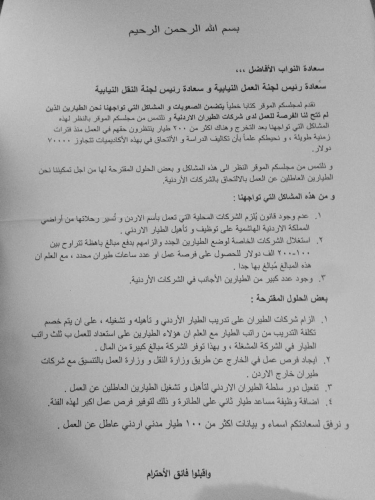 بسم الله الرحمن الرحيم
سعادة النواب الأفاضل ...
سعادة رئيس لجنة العمل النيابية و سعادة رئيس لجنة النقل النيابية
نقدم لمجلسكم الموقر كتابا خطياً يتضمن الصعوبات و المشاكل التي تواجهنا نحن الطيارين الذين
لم تتح لنا الفرصة للعمل لدى شركات الطيران الاردنية و نلتمس من مجلسكم الموقر بالنظر لهذه
المشاكل التي تواجهنا بعد التخرج وهناك اكثر من ٢٠٠ طيار ينتظرون حقهم في العمل منذ فترات
زمنية طويلة , و نحيطكم علماً بأن تكاليف الدراسة و الألتحاق في بهذه الأكاديميات تتجاوز ٧٠٠٠٠
دولار.
و نلتمس من مجلسكم الموقر النظر الى هذه المشاكل و بعض الحلول المقترحة لها من اجل تمكيننا نحن
الطيارين العاطلين عن العمل بالالتحاق بالشركات الأردنية.
و من هذه المشاكل التي تواجهنا :
١. عدم وجود قانون يُلزم الشركات المحلية التي تعمل بأسم الاردن و تُسير رحلاتها من أراضي
المملكة الاردنية الهاشمية على توظيف و تأهيل الطيار الاردني .
٢. استغلال الشركات الخاصة لوضع الطيارين الجدد و الزامهم بدفع مبالغ باهظة تتراوح بين
١٠٠-٢٠٠ الف دولار للحصول على فرصة عمل و عدد ساعات طيران محدد ، مع العلم ان
هذه المبالغ مُبالغ بها جدا .
٣. وجود عدد كبير من الطيارين الأجانب في الشركات الأردنية.
بعض الحلول المقترحة :
١. الزام شركات الطيران على تدريب الطيار الأردني و تأهيله و تشغيله ، على ان يتم خصم
تكلفة التدريب من راتب الطيار مع العلم ان هؤلاء الطيارين على استعداد للعمل ب ثلث راتب
الطيار في الشركة المشغلة ، و بهذا توفر الشركة مبالغ كبيرة من المال .
٢. ايجاد فرص عمل في الخارج عن طريق وزارة النقل و وزارة العمل بالتنسيق مع شركات
طيران خارج الاردن .
٣. تفعيل دور سلطة الطيران الاردني لتأهيل و تشغيل الطيارين العاطلين عن العمل.
٤. اضافة وظيفة مساعد طيار ثاني على الطائرة و ذلك لتوفير فرص عمل اكبر لهذه الفئة.
و نرفق لسعادتكم اسماء و بيانات اكثر من ١٠٠ طيار مدني اردني عاطل عن العمل .
واقبلوا فائق الأحترام